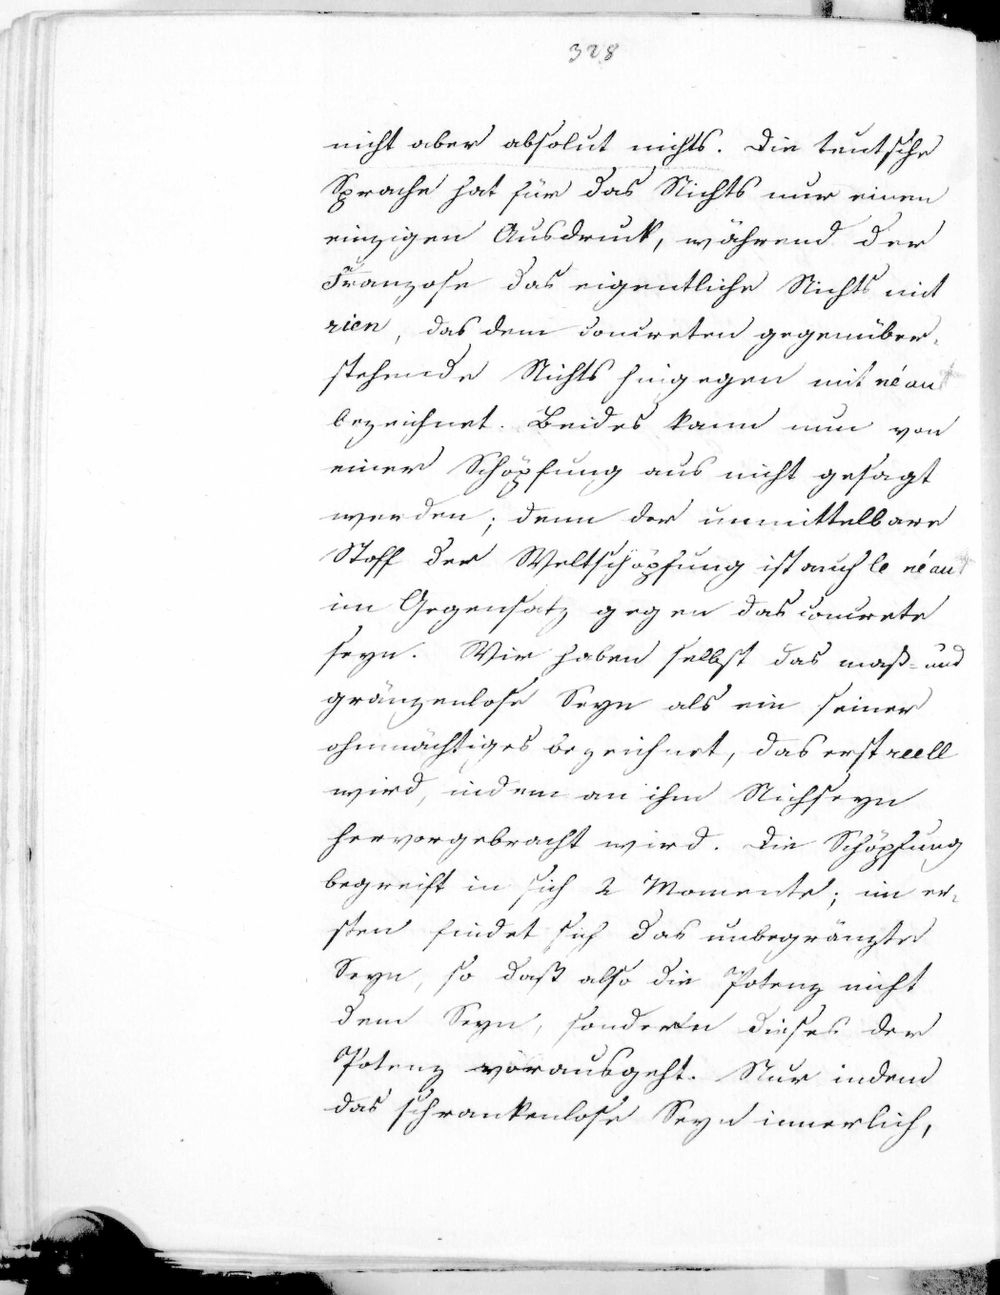 328
nicht aber absolut nichts. Die teutsche
Sprache hat für das Nichts nur einen
einzigen Ausdruck, während der
Franzose das eigentliche Nichts mit
rien, das dem concreten gegenüber-
stehende Nichts hingegen mit néant
bezeichnet. Beides kann nun von
einer Schöpfung aus nicht gesagt
werden; denn der unmittelbare
Stoff der Weltschöpfung ist auch le néant
im Gegensatz gegen das concrete
seyn. Wir haben selbst das maß- und
gränzenlose Seyn als ein seiner
ohnmächtiges bezeichnet, das erst reell
wird, indem an ihm Nichseyn
hervorgebracht wird. Die Schöpfung
begreift in sich 2 Momente; im er-
sten findet sich das unbegränzte
Seyn, so daß also die Potenz nicht
dem Seyn, sondern dieses der
Potenz vorausgeht. Nur indem
das schrankenlose Seyn innerlich,